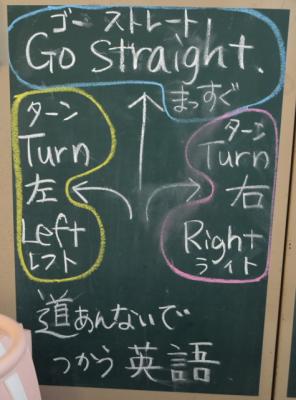 ゴー ストレート
Go Straight.
まっすぐ
ターン
Turn
左
Left
レフト
ターン
Turn
右
Right
ライト
道あんないで
つかう英語